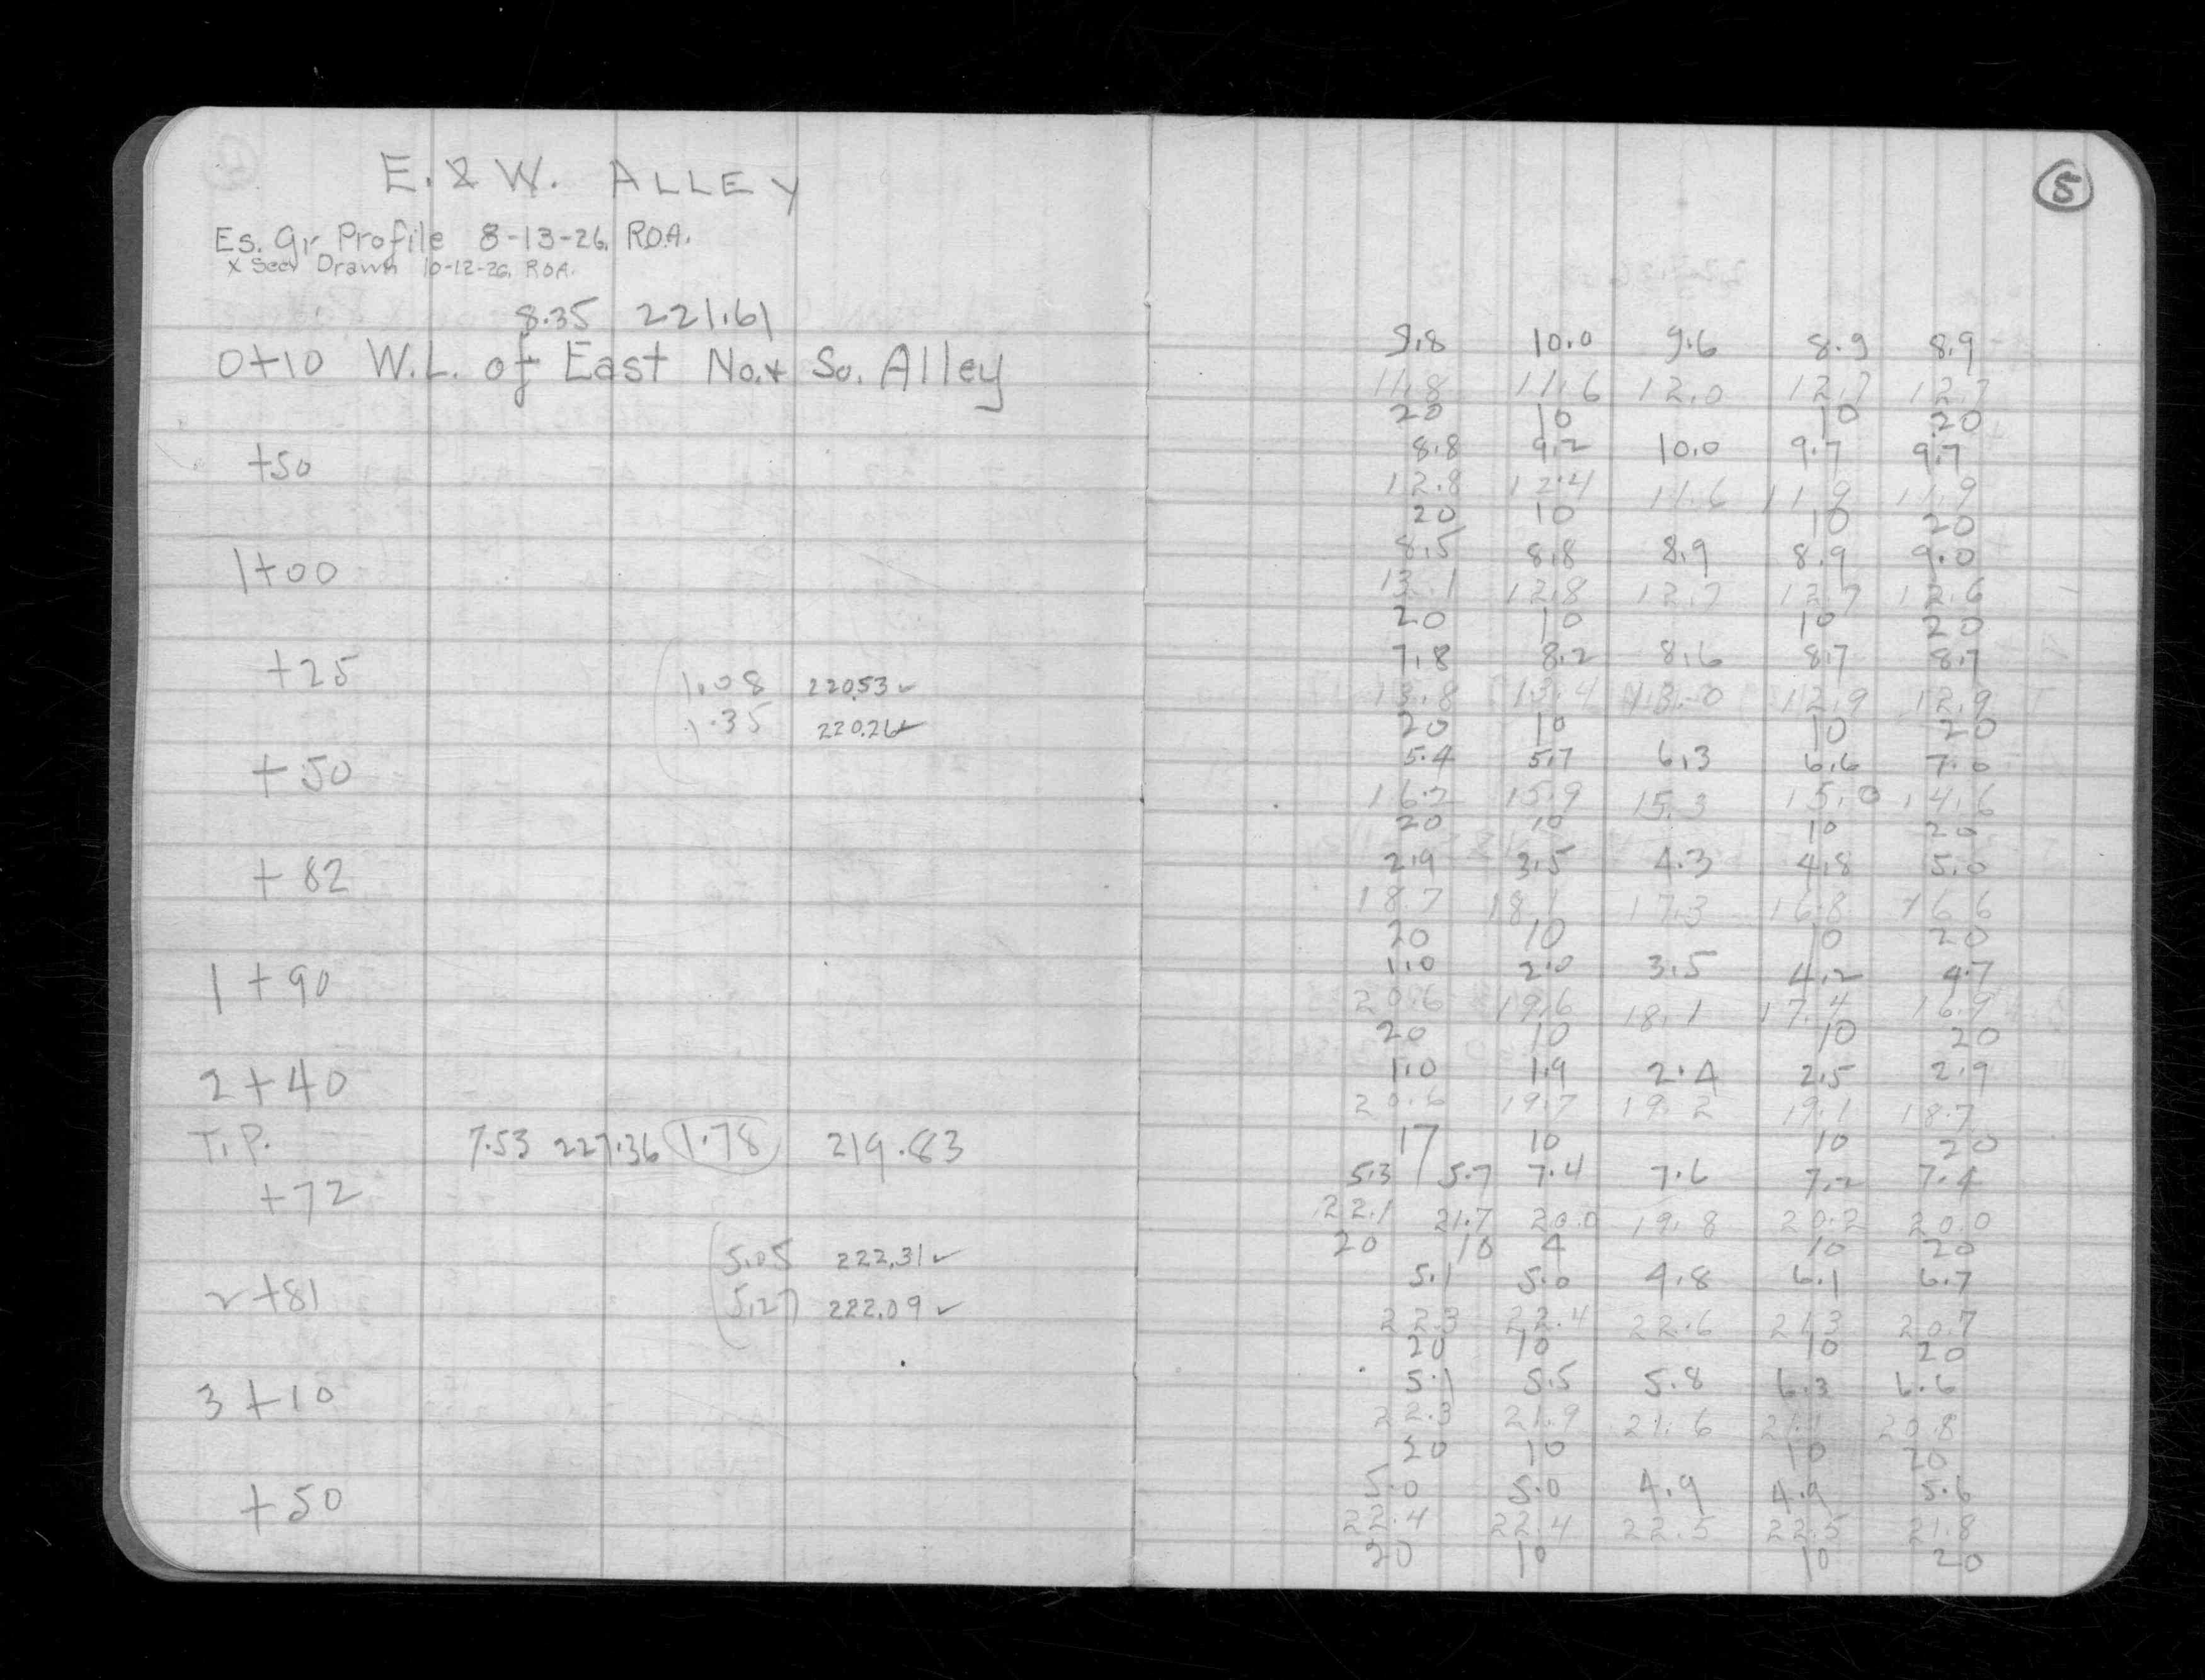 E. & W. ALLEY
Es. Gr Profile 8-13-26, R.O.A.
X Sec Drawn 10-12-26, ROA.
8.35 221.61
0+10 W.L. of East No. & So. Alley
+50
1+00
+25 1.08 220.53 ✓
1.35 220.26 ✓
+50
+82
1+90
2+40
T.P. 7.53 227.36 1.78 219.83
+72
5.05 222.31 ✓
2+81 5.27 222.09 ✓
3+10
+50
5
9.8 10.0 9.6 8.9 8.9
11.8 11.6 12.0 12.7 12.7
20 10 10 20
8.8 9.2 10.0 9.7 9.7
12.8 12.4 11.6 11.9 11.9
20 10 10 20
8.5 8.8 8.9 8.9 9.0
13.1 12.8 12.7 12.7 12.6
20 10 10 20
7.8 8.2 8.6 8.7 8.7
13.8 13.4 13.0 12.9 12.9
20 10 10 20
5.4 5.7 6.3 6.6 7.0
16.2 15.9 15.3 15.0 14.6
20 10 10 20
2.9 3.5 4.3 4.8 5.0
18.7 18.1 17.3 16.8 16.6
20 10 10 20
1.0 2.0 3.5 4.2 4.7
20.6 19.6 18.1 17.4 16.9
20 10 10 20
1.0 1.9 2.4 2.5 2.9
20.6 19.7 19.2 19.1 18.7
17 10 10 20
5.3 5.7 7.4 7.6 7.2 7.4
22.1 21.7 20.0 19.8 20.2 20.0
20 10 4 10 20
5.1 5.0 4.8 6.1 6.7
22.3 22.4 22.6 21.3 20.7
20 10 10 20
5.1 5.5 5.8 6.3 6.6
22.3 21.9 21.6 21.1 20.8
20 10 10 20
5.0 5.0 4.9 4.9 5.6
22.4 22.4 22.5 22.5 21.8
20 10 10 20